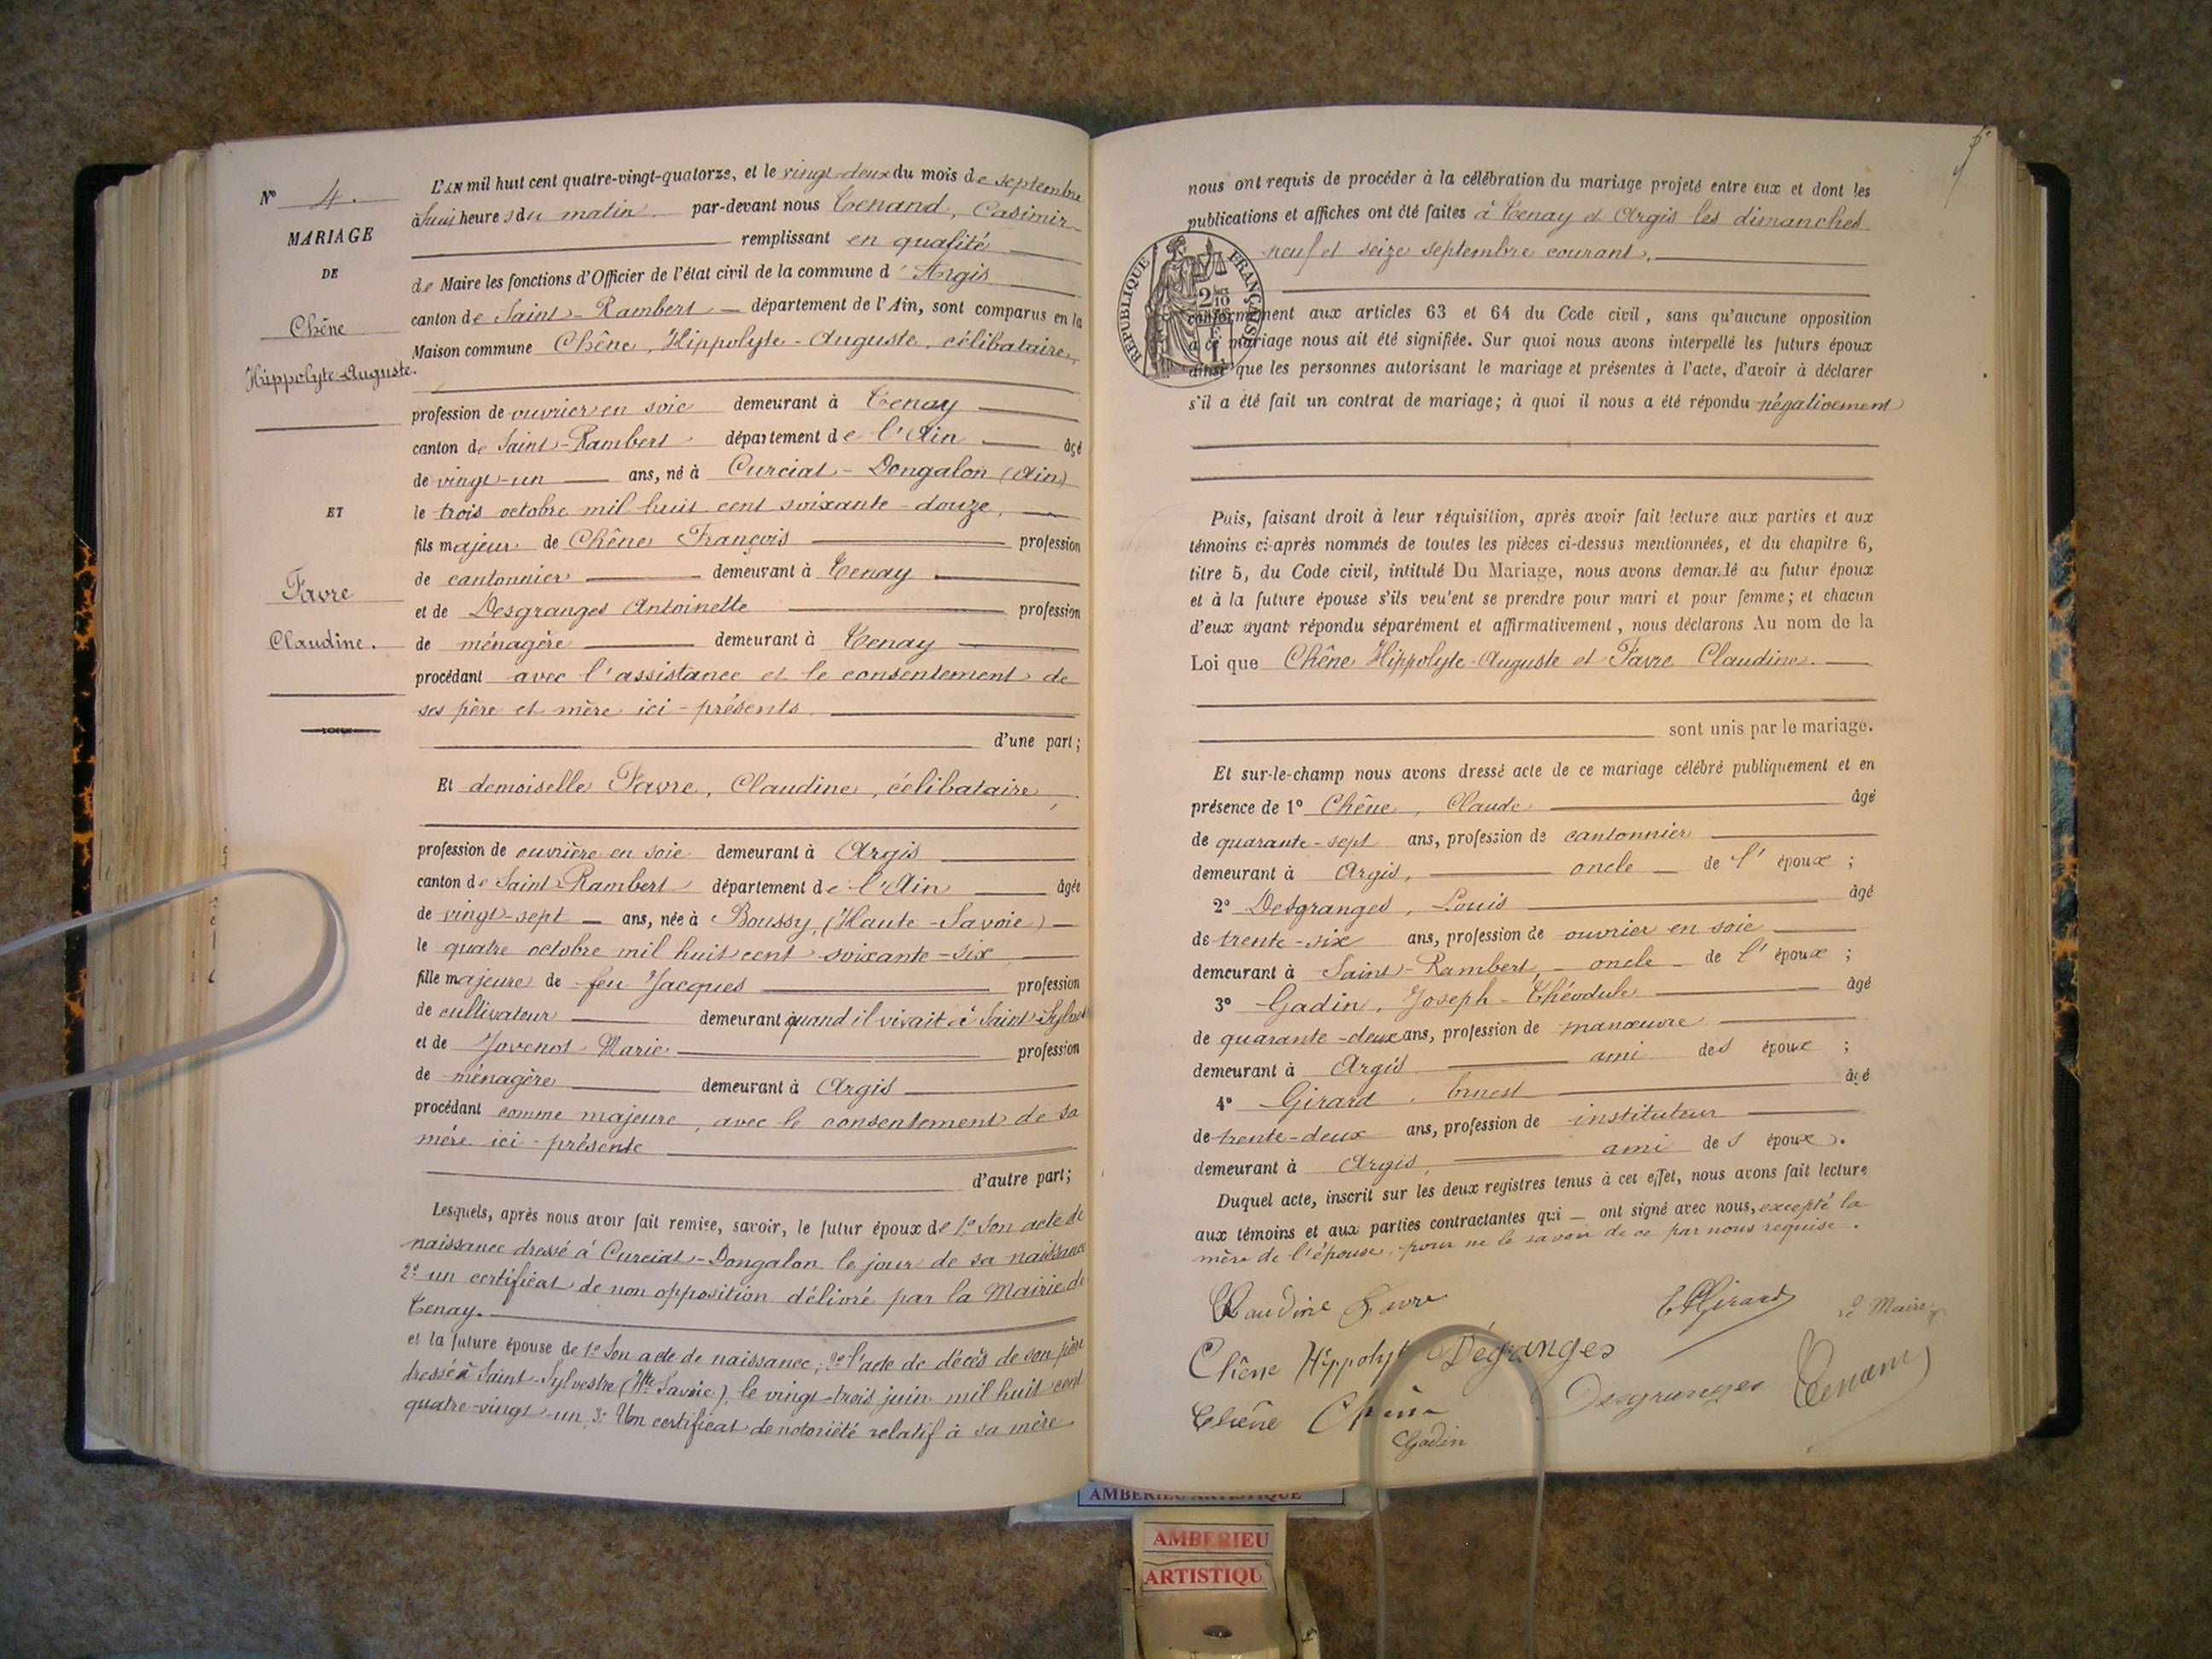 N° 4.
MARIAGE
DE
Chêne
Hippolyte-Auguste.
ET
Favre
Claudine.
L'AN mil huit cent quatre-vingt-quatorze, et le vingt-deux du mois de septembre
à huit heures du matin par-devant nous Tenand, Casimir
remplissant en qualité
de Maire les fonctions d'Officier de l'état civil de la commune d'Argis
canton de Saint-Rambert département de l'Ain, sont comparus en la
Maison commune Chêne, Hippolyte-Auguste, célibataire,
profession de ouvrier en soie demeurant à Tenay
canton de Saint-Rambert département de l'Ain âgé
de vingt-un ans, né à Curciat-Dongalon (Ain)
le trois octobre mil huit cent soixante-douze,
fils majeur de Chêne François profession
de cantonnier demeurant à Tenay
et de Desgranges Antoinette profession
de ménagère demeurant à Tenay
procédant avec l'assistance et le consentement de
ses père et mère ici-présents.
d'une part;
Et demoiselle Favre, Claudine, célibataire,
profession de ouvrière en soie demeurant à Argis
canton de Saint-Rambert département de l'Ain âgée
de vingt-sept ans, née à Boussy, (Haute-Savoie)
le quatre octobre mil huit cent soixante-six,
fille majeure de feu Jacques profession
de cultivateur demeurant quand il vivait à Saint-Sylvest
et de Jovenot Marie profession
de ménagère demeurant à Argis
procédant comme majeure, avec le consentement de sa
mère ici-présente
d'autre part;
Lesquels, après nous avoir fait remise, savoir, le futur époux de 1° Son acte de
naissance dressé à Curciat-Dongalon le jour de sa naissance
2° un certificat de non opposition délivré par la Mairie de
Tenay.
et la future épouse de 1° Son acte de naissance; 2° l'acte de décès de son père
dressé à Saint-Sylvestre (Hte Savoie), le vingt-trois juin mil huit cent
quatre-vingt-un 3° Un certificat de notoriété relatif à sa mère
nous ont requis de procéder à la célébration du mariage projeté entre eux et dont les
publications et affiches ont été faites à Tenay et Argis les dimanches
neuf et seize septembre courant.
RÉPUBLIQUE FRANÇAISE
conformément aux articles 63 et 64 du Code civil, sans qu'aucune opposition
à ce mariage nous ait été signifiée. Sur quoi nous avons interpellé les futurs époux
ainsi que les personnes autorisant le mariage et présentes à l'acte, d'avoir à déclarer
s'il a été fait un contrat de mariage; à quoi il nous a été répondu négativement
Puis, faisant droit à leur réquisition, après avoir fait lecture aux parties et aux
témoins ci-après nommés de toutes les pièces ci-dessus mentionnées, et du chapitre 6,
titre 5, du Code civil, intitulé Du Mariage, nous avons demandé au futur époux
et à la future épouse s'ils veulent se prendre pour mari et pour femme; et chacun
d'eux ayant répondu séparément et affirmativement, nous déclarons Au nom de la
Loi que Chêne Hippolyte-Auguste et Favre Claudine.
sont unis par le mariage.
Et sur-le-champ nous avons dressé acte de ce mariage célébré publiquement et en
présence de 1° Chêne, Claude âgé
de quarante-sept ans, profession de cantonnier
demeurant à Argis, oncle de l'époux;
2° Desgranges, Louis âgé
de trente-six ans, profession de ouvrier en soie
demeurant à Saint-Rambert, oncle de l'époux;
3° Gadin, Joseph-Théodule âgé
de quarante-deux ans, profession de manœuvre
demeurant à Argis ami des époux;
4° Girard, Ernest âgé
de trente-deux ans, profession de instituteur
demeurant à Argis, ami des époux.
Duquel acte, inscrit sur les deux registres tenus à cet effet, nous avons fait lecture
aux témoins et aux parties contractantes qui ont signé avec nous, excepté la
mère de l'épouse, pour ne le savoir de ce par nous requise.
Claudine Favre
EGirard
Le Maire
Chêne Hippolyte Dégranges
Desgranges Tenand
Chêne Chêne
Gadin
AMBERIEU ARTISTIQUE
AMBERIEU
ARTISTIQU